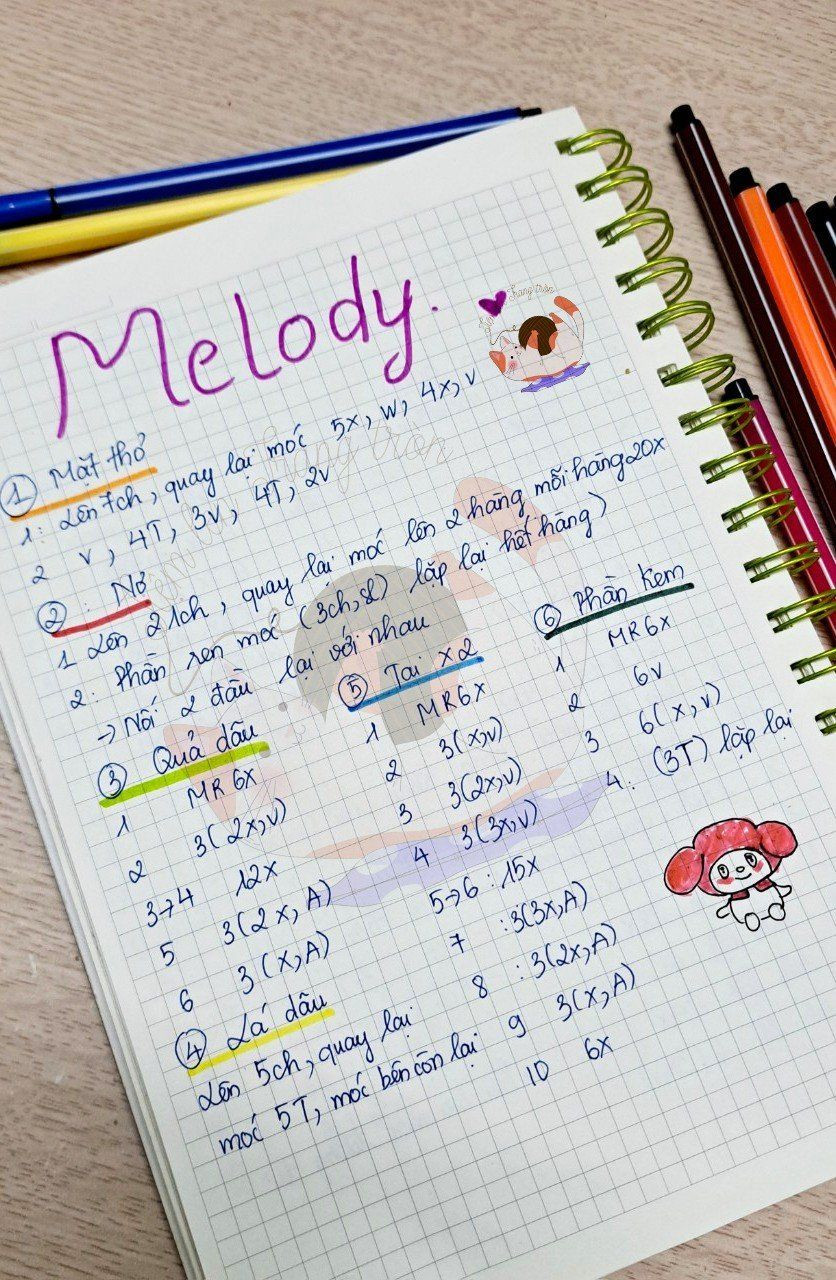 Melody.
① Mặt thỏ
1: Lên 7ch, quay lại móc 5x, w, 4x, v
2 v, 4T, 3v, 4T, 2v
② : Nơ
1 Lên 21ch, quay lại móc lên 2 hàng mỗi hàng 20x
2: Phần ren móc (3ch, sl) lặp lại hết hàng)
→ Nối 2 đầu lại với nhau
③ Quả dâu
1 MR 6x
2 3(2x,v)
3→4 12x
5 3(2x,A)
6 3(x,A)
④ Lá dâu
Lên 5ch, quay lại
móc 5T, móc bên còn lại
⑤ Tai x2
1 MR6x
2 3(x,v)
3 3(2x,v)
4 3(3x,v)
5→6 : 15x
7 : 3(3x,A)
8 : 3(2x,A)
9 3(x,A)
10 6x
⑥ Phần kem
1 MR6x
2 6v
3 6(x,v)
4. (3T) lặp lại
Trang tròn